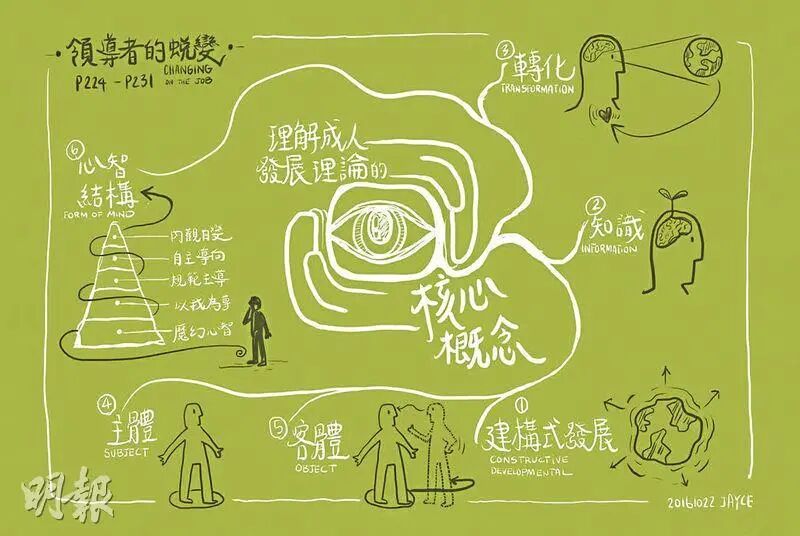 ·領導者的蛻變·
P224-P231
CHANGING
ON THE JOB
理解成人
發展理論的
核心
概念
①
建構式發展
CONSTRUCTIVE
DEVELOPMENTAL
②
知識
INFORMATION
③轉化
TRANSFORMATION
④
主體
SUBJECT
⑤客體
OBJECT
⑥心智
結構
FORM OF MIND
內觀自變
自主導向
規範主導
以我為尊
魔幻心智
明報
20161022 JAYCE